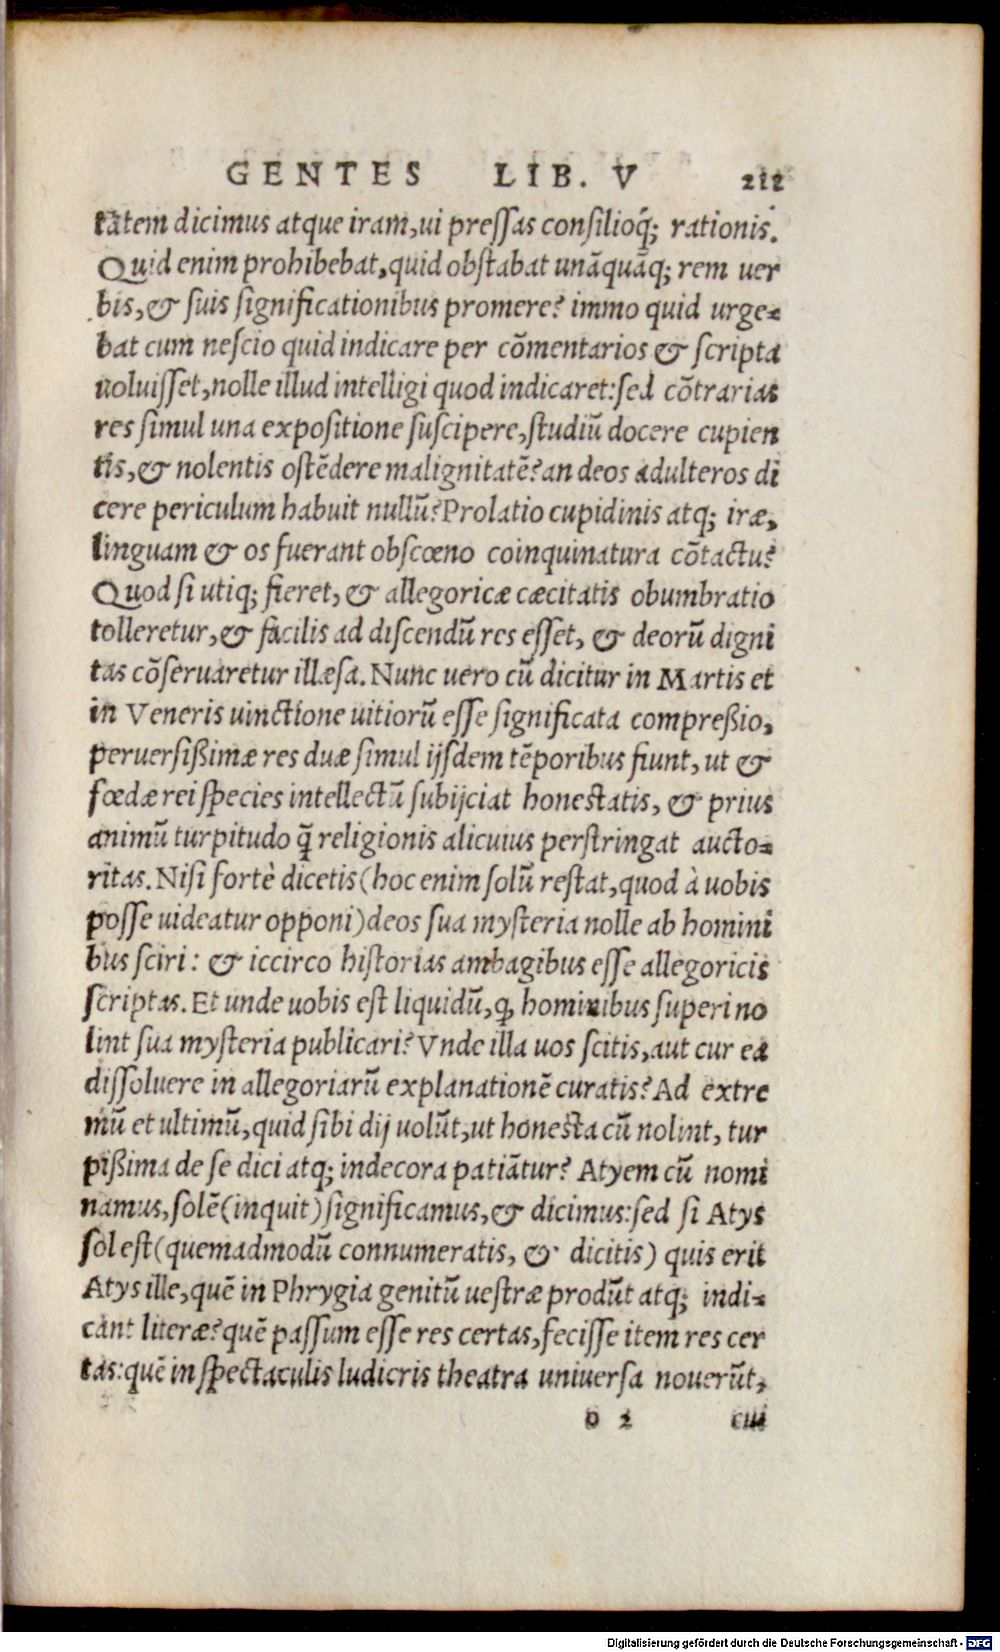 GENTES LIB. V 212
tatem dicimus atque iram, ui pressas consilioq́; rationis.
Quid enim prohibebat, quid obstabat unāquāq; rem uer
bis, & suis significationibus promere? immo quid urge-
bat cum nescio quid indicare per cōmentarios & scripta
uoluisset, nolle illud intelligi quod indicaret: sed cōtrarias
res simul una expositione suscipere, studiū docere cupien
tis, & nolentis ostēdere malignitatē? an deos adulteros di
cere periculum habuit nullū? Prolatio cupidinis atq; iræ,
linguam & os fuerant obscœno coinquinatura cōtactu?
Quod si utiq; fieret, & allegoricæ cæcitatis obumbratio
tolleretur, & facilis ad discendū res esset, & deorū digni
tas cōseruaretur illæsa. Nunc uero cū dicitur in Martis et
in Veneris uinctione uitiorū esse significata compreßio,
peruersißimæ res duæ simul ijsdem tēporibus fiunt, ut &
fœdæ rei species intellectū subijciat honestatis, & prius
animū turpitudo q̄ religionis alicuius perstringat aucto-
ritas. Nisi fortè dicetis (hoc enim solū restat, quod à uobis
posse uideatur opponi) deos sua mysteria nolle ab homini
bus sciri: & iccirco historias ambagibus esse allegoricis
scriptas. Et unde uobis est liquidū, ꝙ hominibus superi no
lint sua mysteria publicari? Vnde illa uos scitis, aut cur ea
dissoluere in allegoriarū explanationē curatis? Ad extre
mū et ultimū, quid sibi dij uolūt, ut honesta cū nolint, tur
pißima de se dici atq; indecora patiātur? Atyem cū nomi
namus, solē (inquit) significamus, & dicimus: sed si Atys
sol est (quemadmodū connumeratis, & dicitis) quis erit
Atys ille, quē in Phrygia genitū uestræ produt̄ atq; indi-
cant literæ? quē passum esse res certas, fecisse item res cer
tas: quē in spectaculis ludicris theatra uniuersa nouerūt,
D 2 cui
Digitalisierung gefördert durch die Deutsche Forschungsgemeinschaft - DFG